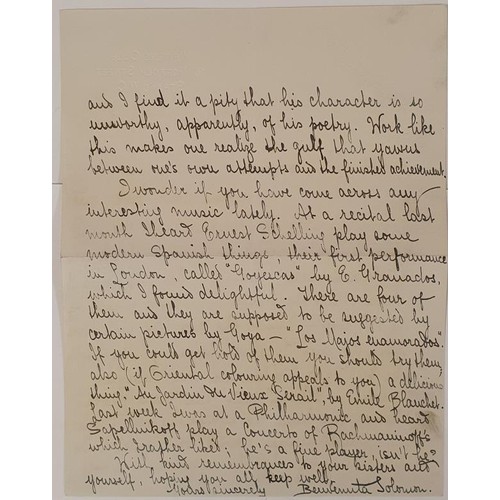 and I find it a pity that his character is so
unworthy, apparently, of his poetry. Work like
this makes one realize the gulf that yawns
between one's own attempts and the finished achievement.
I wonder if you have come across any
interesting music lately. At a recital last
month I heard Ernest Schelling play some
modern Spanish things, their first performance
in London, called "Goyescas" by E. Granados,
which I found delightful. There are four of
them and they are supposed to be suggested by
certain pictures by Goya – "Los Majos enamorados".
If you could get hold of them you should try them,
also (if Oriental colouring appeals to you) a delicious
thing "Au Jardin du Vieux Serail" by Emile Blanchet.
Last week I was at a Philharmonic and heard
Sapellnikoff play a Concerto of Rachmaninoff's
which I rather liked; he's a fine player, isn't he?
With kind remembrances to your sisters and
yourself, hoping you all keep well
Yours sincerely Benvenuta Solomon.